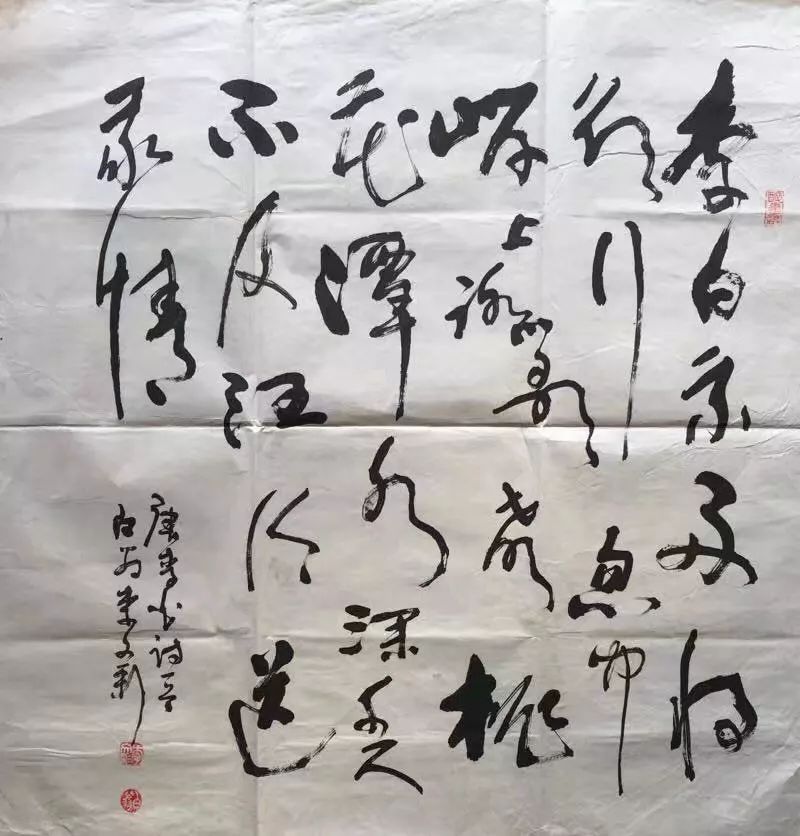 李白乘舟将
欲行忽闻
岸上踏歌声桃
花潭水深千尺
不及汪伦送
我情
唐李白诗一首